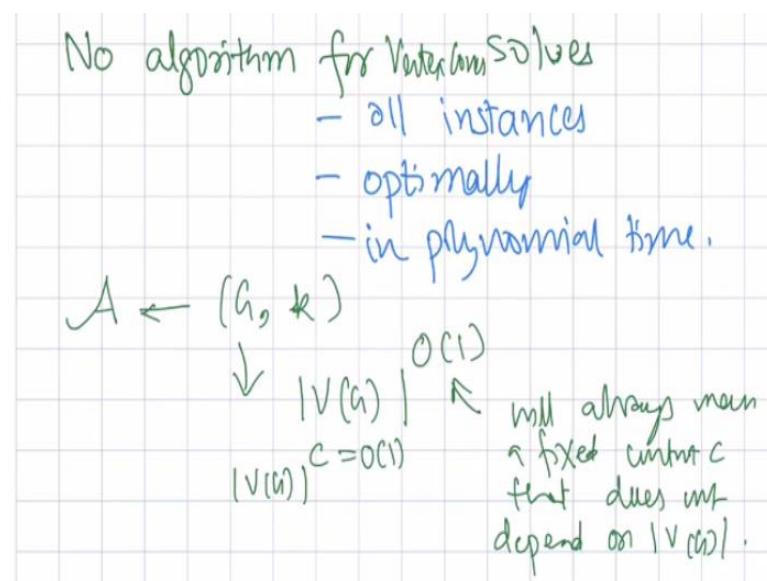 No algorithm for Vertex Cover solves
- all instances
- optimally
- in polynomial time.
A ← (G, k)
↓
|V(G)|^O(1)
↖ will always mean
|V(G)|^C = O(1)
a fixed constant c
that does not
depend on |V(G)|.